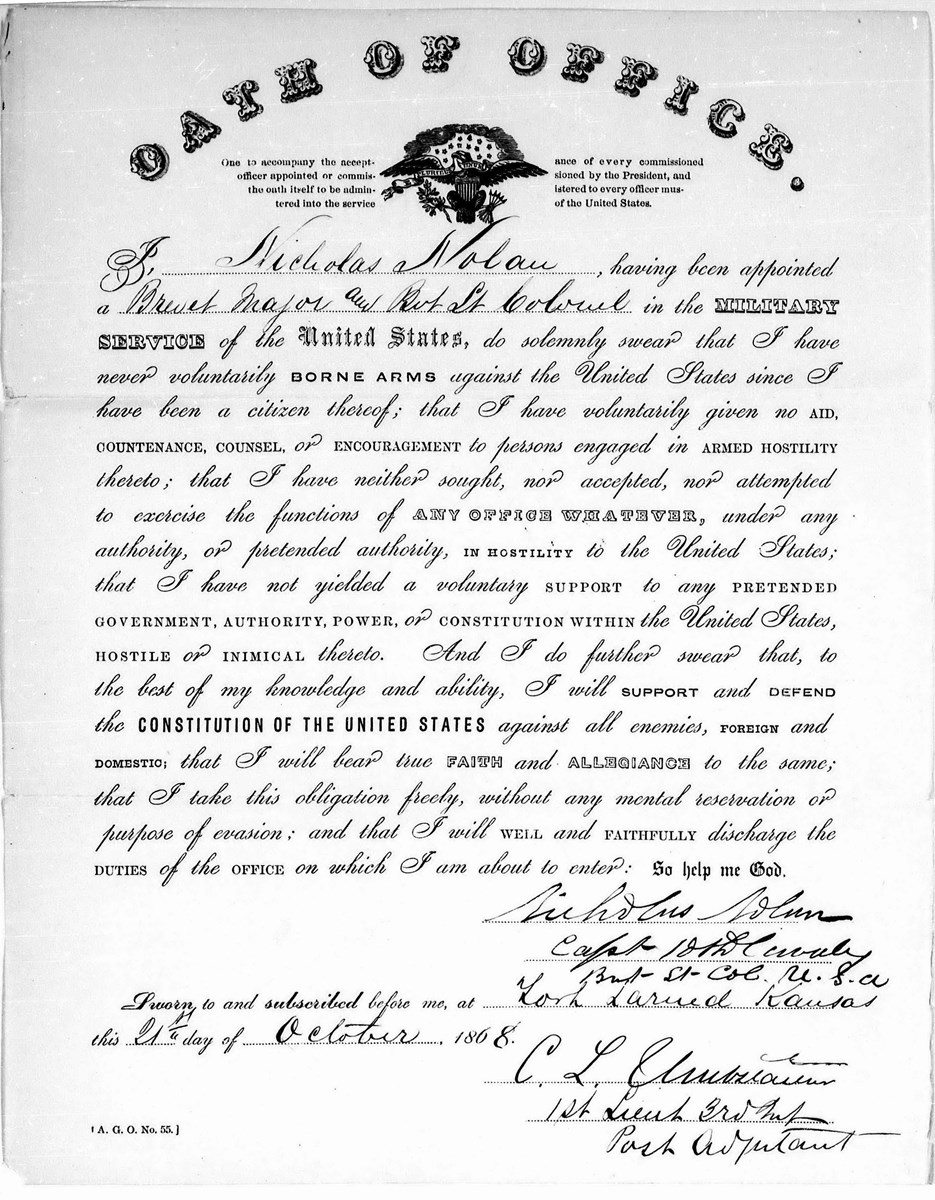 OATH OF OFFICE.
One to accompany the accept-ance of every commissioned
officer appointed or commis-sioned by the President, and
the oath itself to be admin-istered to every officer mus-
tered into the service of the United States.
I, Nicholas Nolan, having been appointed
a Brevet Major and Bvt Lt Colonel in the MILITARY
SERVICE of the United States, do solemnly swear that I have
never voluntarily BORNE ARMS against the United States since I
have been a citizen thereof; that I have voluntarily given no AID,
COUNTENANCE, COUNSEL, or ENCOURAGEMENT to persons engaged in ARMED HOSTILITY
thereto; that I have neither sought, nor accepted, nor attempted
to exercise the functions of ANY OFFICE WHATEVER, under any
authority, or pretended authority, IN HOSTILITY to the United States;
that I have not yielded a voluntary SUPPORT to any PRETENDED
GOVERNMENT, AUTHORITY, POWER, or CONSTITUTION WITHIN the United States,
HOSTILE or INIMICAL thereto. And I do further swear that, to
the best of my knowledge and ability, I will SUPPORT and DEFEND
the CONSTITUTION OF THE UNITED STATES against all enemies, FOREIGN and
DOMESTIC; that I will bear true FAITH and ALLEGIANCE to the same;
that I take this obligation freely, without any mental reservation or
purpose of evasion; and that I will WELL and FAITHFULLY discharge the
DUTIES of the OFFICE on which I am about to enter: So help me God.
Nicholas Nolan
Capt 10th Cavalry
Bvt Lt Col. U.S.A
Sworn to and subscribed before me, at Fort Larned Kansas
this 21st day of October, 1868.
C. L.
1st Lieut 3rd Inf
Post Adjutant
[A. G. O. No. 55.]